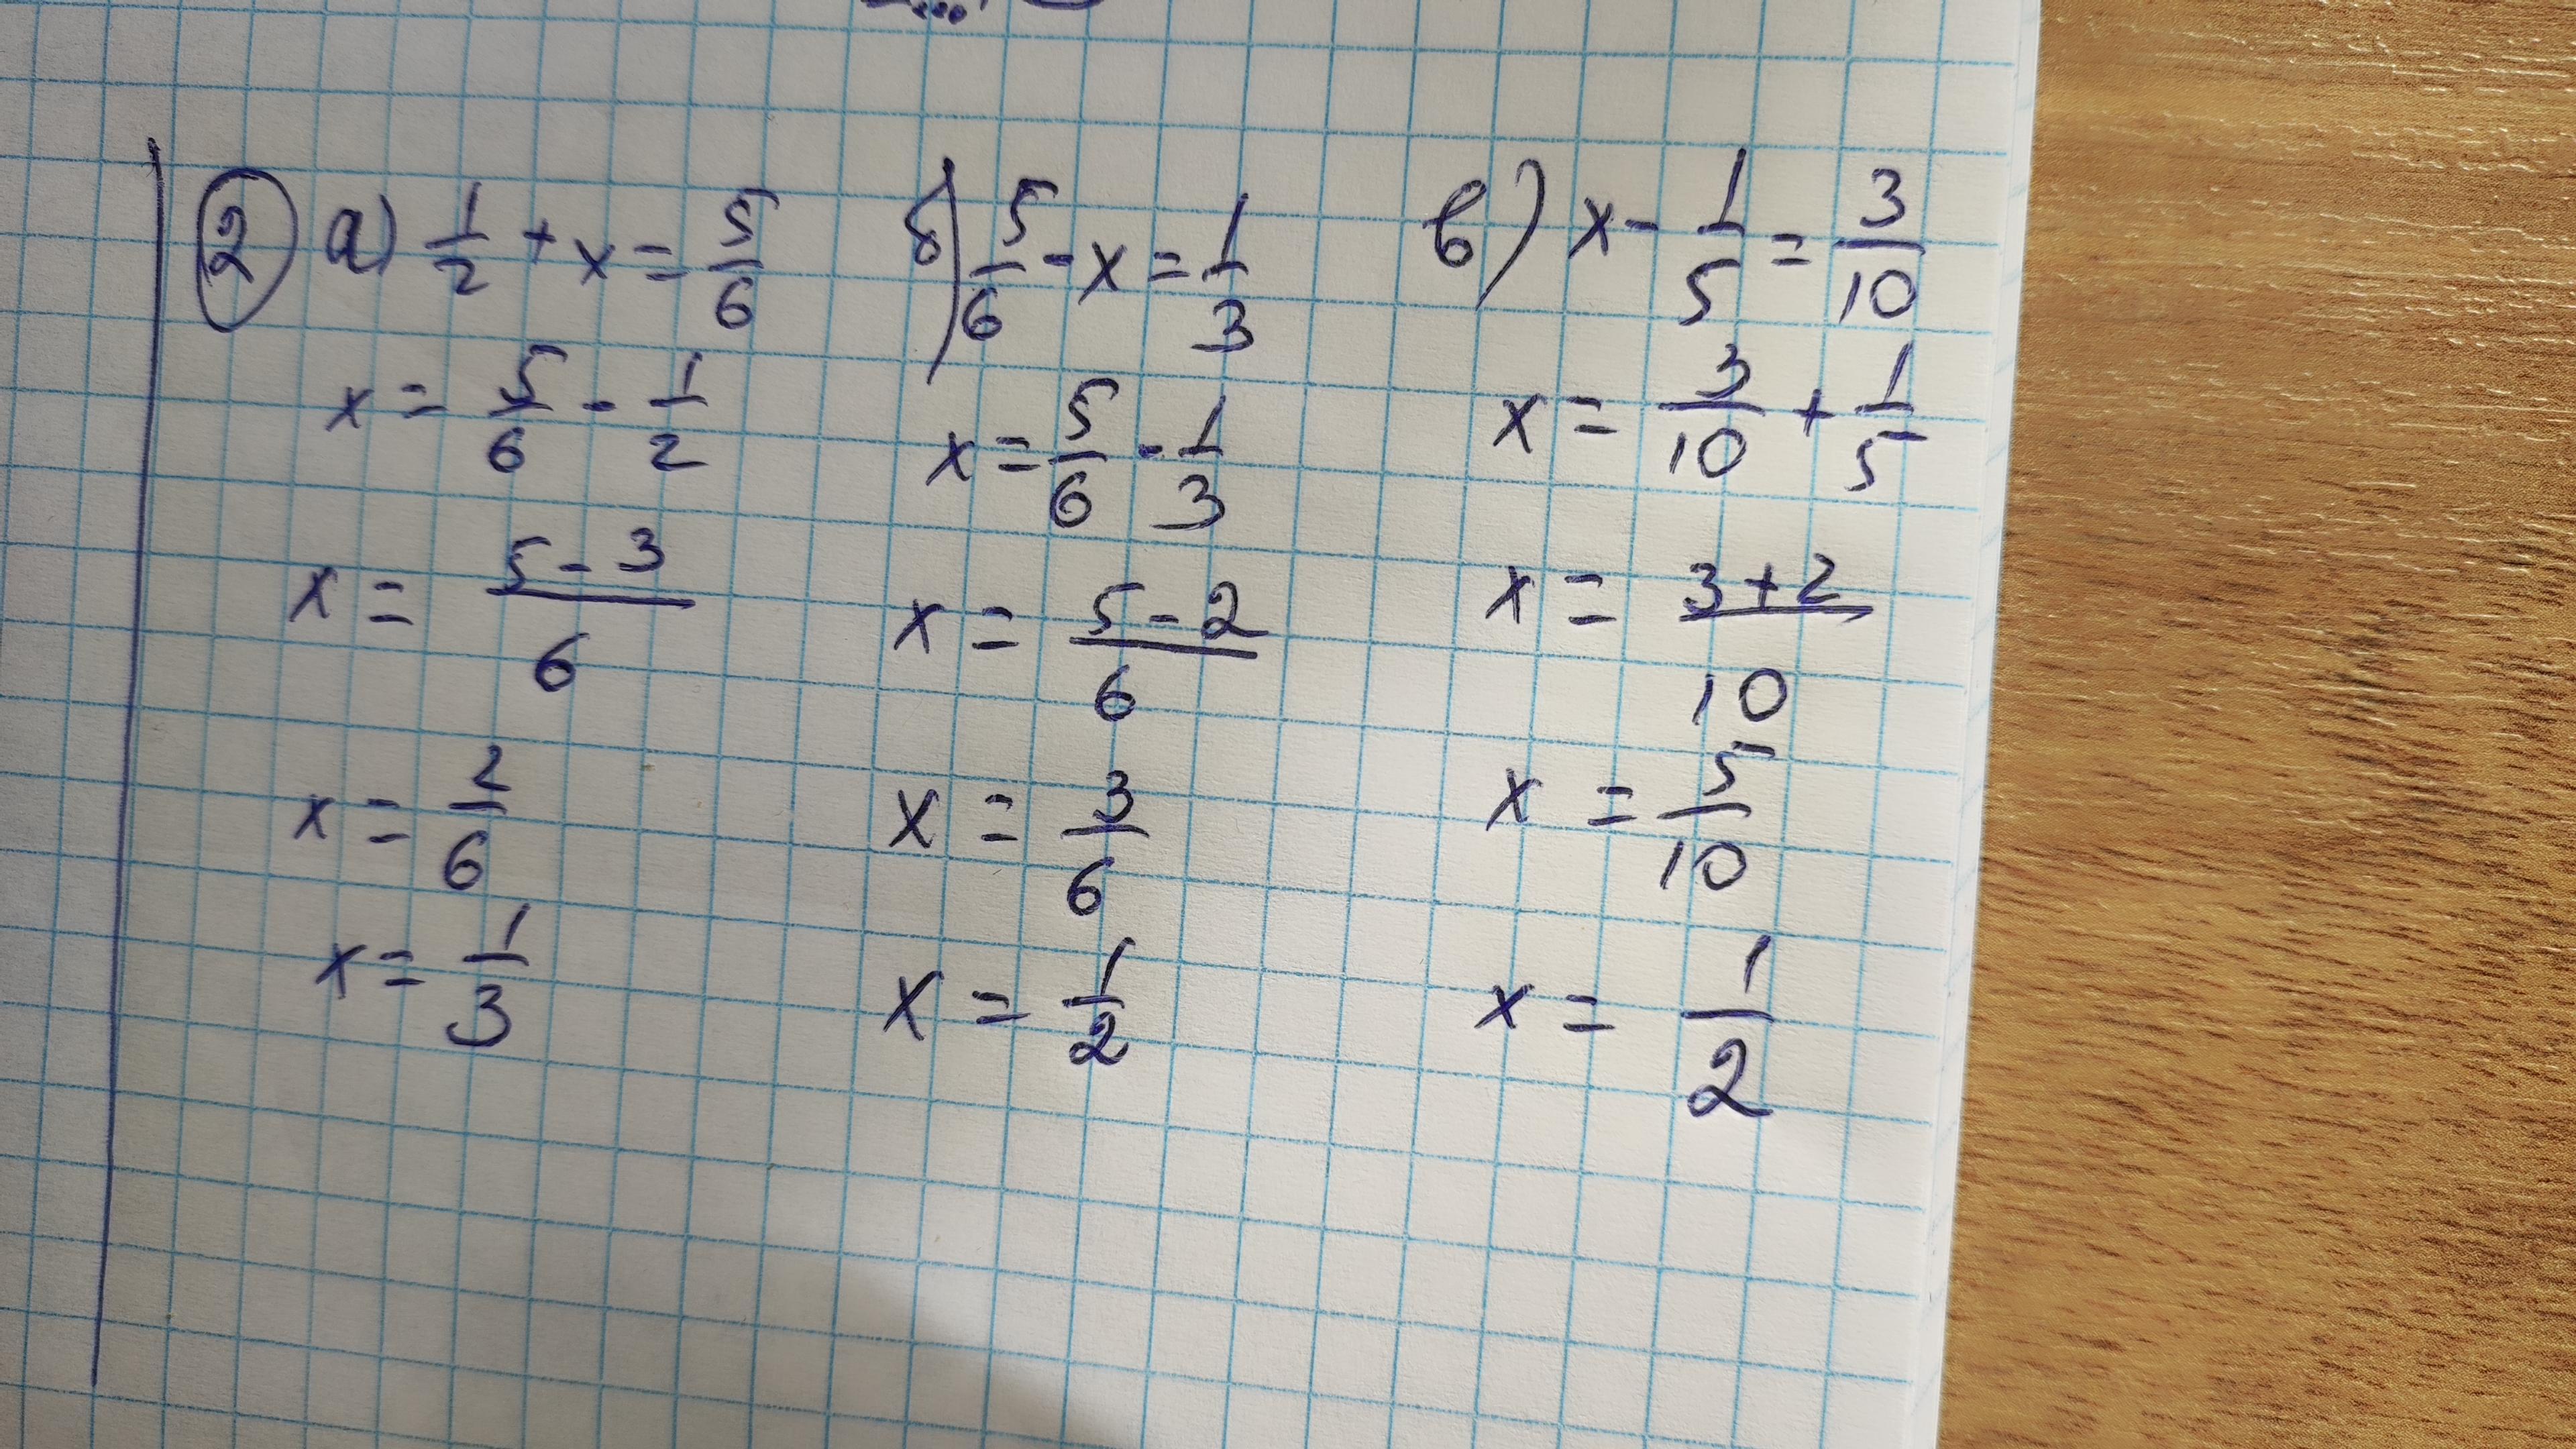 2 а) 1/2 + x = 5/6
x = 5/6 - 1/2
x = (5 - 3)/6
x = 2/6
x = 1/3
б) 5/6 - x = 1/3
x = 5/6 - 1/3
x = (5 - 2)/6
x = 3/6
x = 1/2
в) x - 1/5 = 3/10
x = 3/10 + 1/5
x = (3 + 2)/10
x = 5/10
x = 1/2